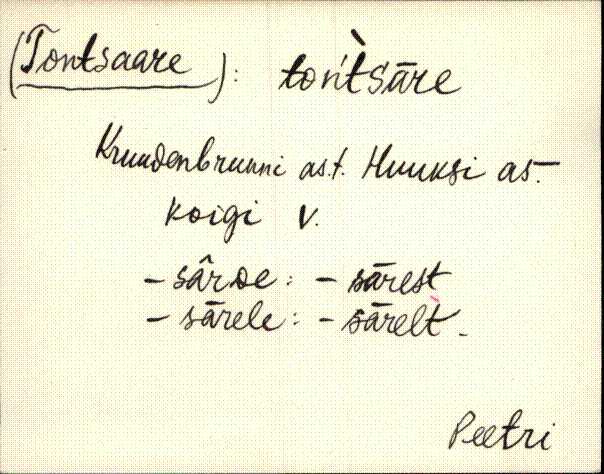 (Tontsaare): tońt̀śāre
Kruudenbrunni as.t. Huuksi as.
Koigi v.
- sârde: - sārest
- sārele: - sārelt -
Peetri